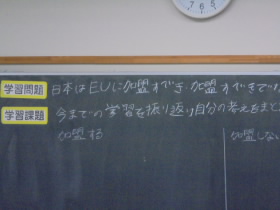 学習問題 日本はEUに加盟すべき・加盟すべきでない
学習課題 今までの学習を振り返り自分の考えをまと
加盟する 加盟しない